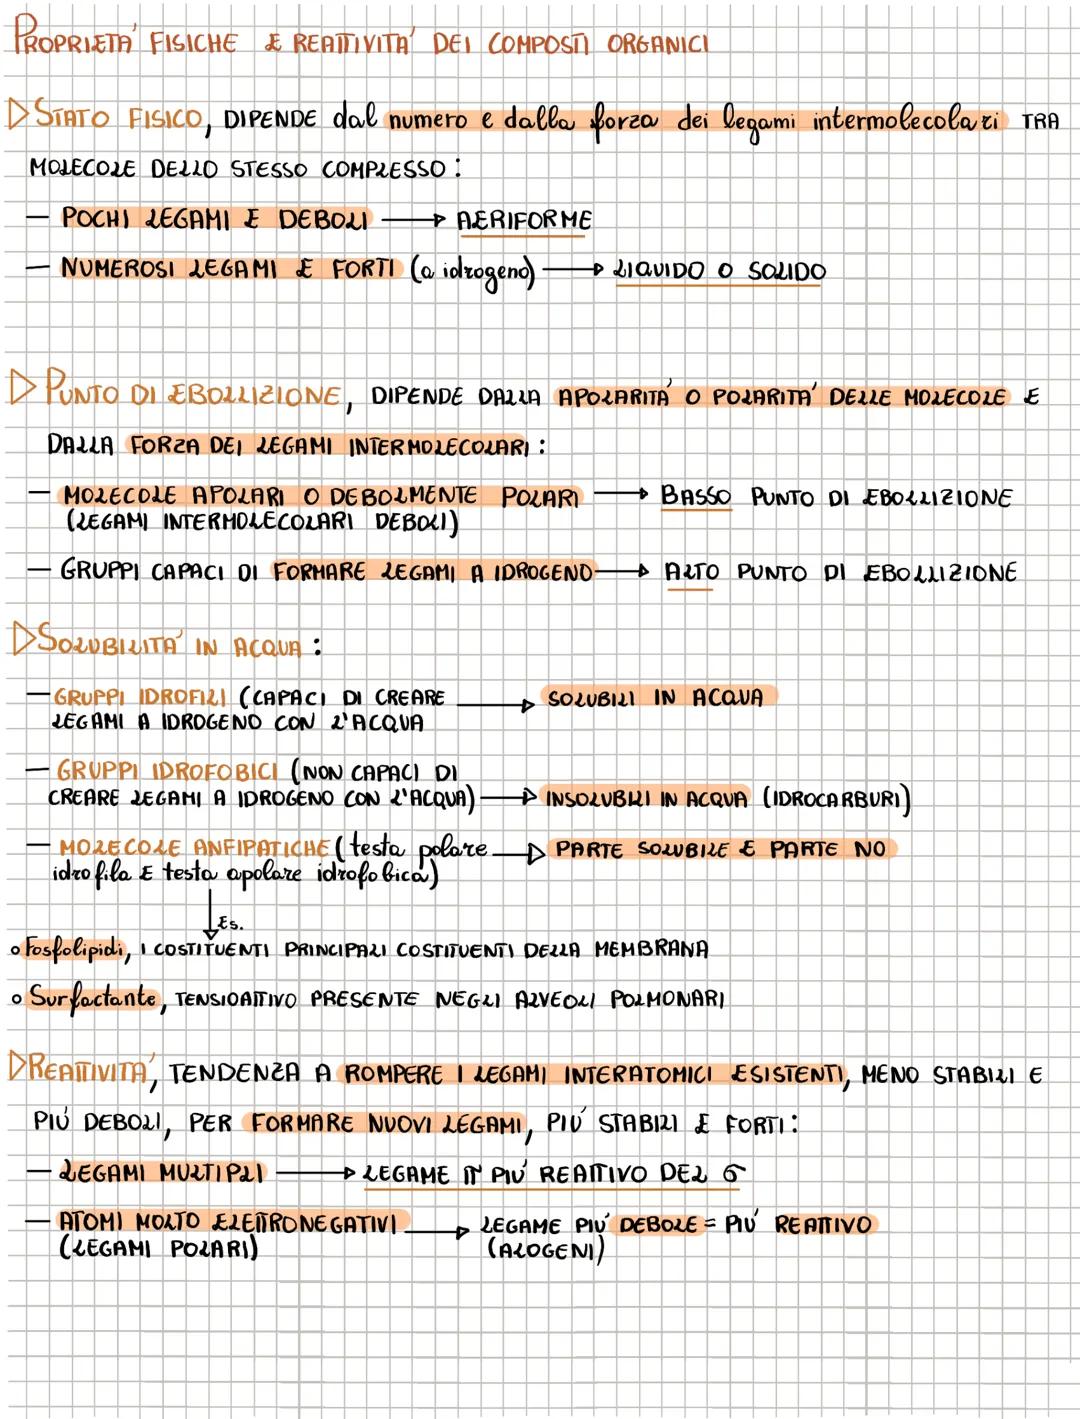 PROPRIETA' FISICHE E REATTIVITA' DEI COMPOSTI ORGANICI
▷ STATO FISICO, DIPENDE dal numero e dalla forza dei legami intermolecolari TRA
MOLECOLE DELLO STESSO COMPLESSO:
— POCHI LEGAMI E DEBOLI → AERIFORME
— NUMEROSI LEGAMI E FORTI (a idrogeno) → LIQUIDO O SOLIDO
▷ PUNTO DI EBOLLIZIONE, DIPENDE DALLA APOLARITA' O POLARITA' DELLE MOLECOLE E
DALLA FORZA DEI LEGAMI INTERMOLECOLARI:
— MOLECOLE APOLARI O DEBOLMENTE POLARI → BASSO PUNTO DI EBOLLIZIONE
(LEGAMI INTERMOLECOLARI DEBOLI)
— GRUPPI CAPACI DI FORMARE LEGAMI A IDROGENO → ALTO PUNTO DI EBOLLIZIONE
▷ SOLUBILITA' IN ACQUA:
— GRUPPI IDROFILI (CAPACI DI CREARE → SOLUBILI IN ACQUA
LEGAMI A IDROGENO CON L'ACQUA
— GRUPPI IDROFOBICI (NON CAPACI DI
CREARE LEGAMI A IDROGENO CON L'ACQUA) → INSOLUBILI IN ACQUA (IDROCARBURI)
— MOLECOLE ANFIPATICHE (testa polare → PARTE SOLUBILE E PARTE NO
idrofila E testa apolare idrofobica)
↓ Es.
o Fosfolipidi, I COSTITUENTI PRINCIPALI COSTITUENTI DELLA MEMBRANA
o Surfactante, TENSIOATTIVO PRESENTE NEGLI ALVEOLI POLMONARI
▷ REATTIVITA', TENDENZA A ROMPERE I LEGAMI INTERATOMICI ESISTENTI, MENO STABILI E
PIU' DEBOLI, PER FORMARE NUOVI LEGAMI, PIU' STABILI E FORTI:
— LEGAMI MULTIPLI → LEGAME π PIU' REATTIVO DEL σ
— ATOMI MOLTO ELETTRONEGATIVI → LEGAME PIU' DEBOLE = PIU' REATTIVO
(LEGAMI POLARI) (ALOGENI)